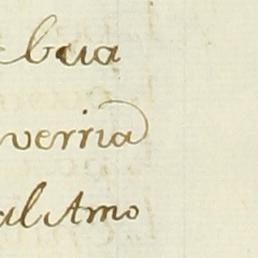 ebua
verria
al Amo